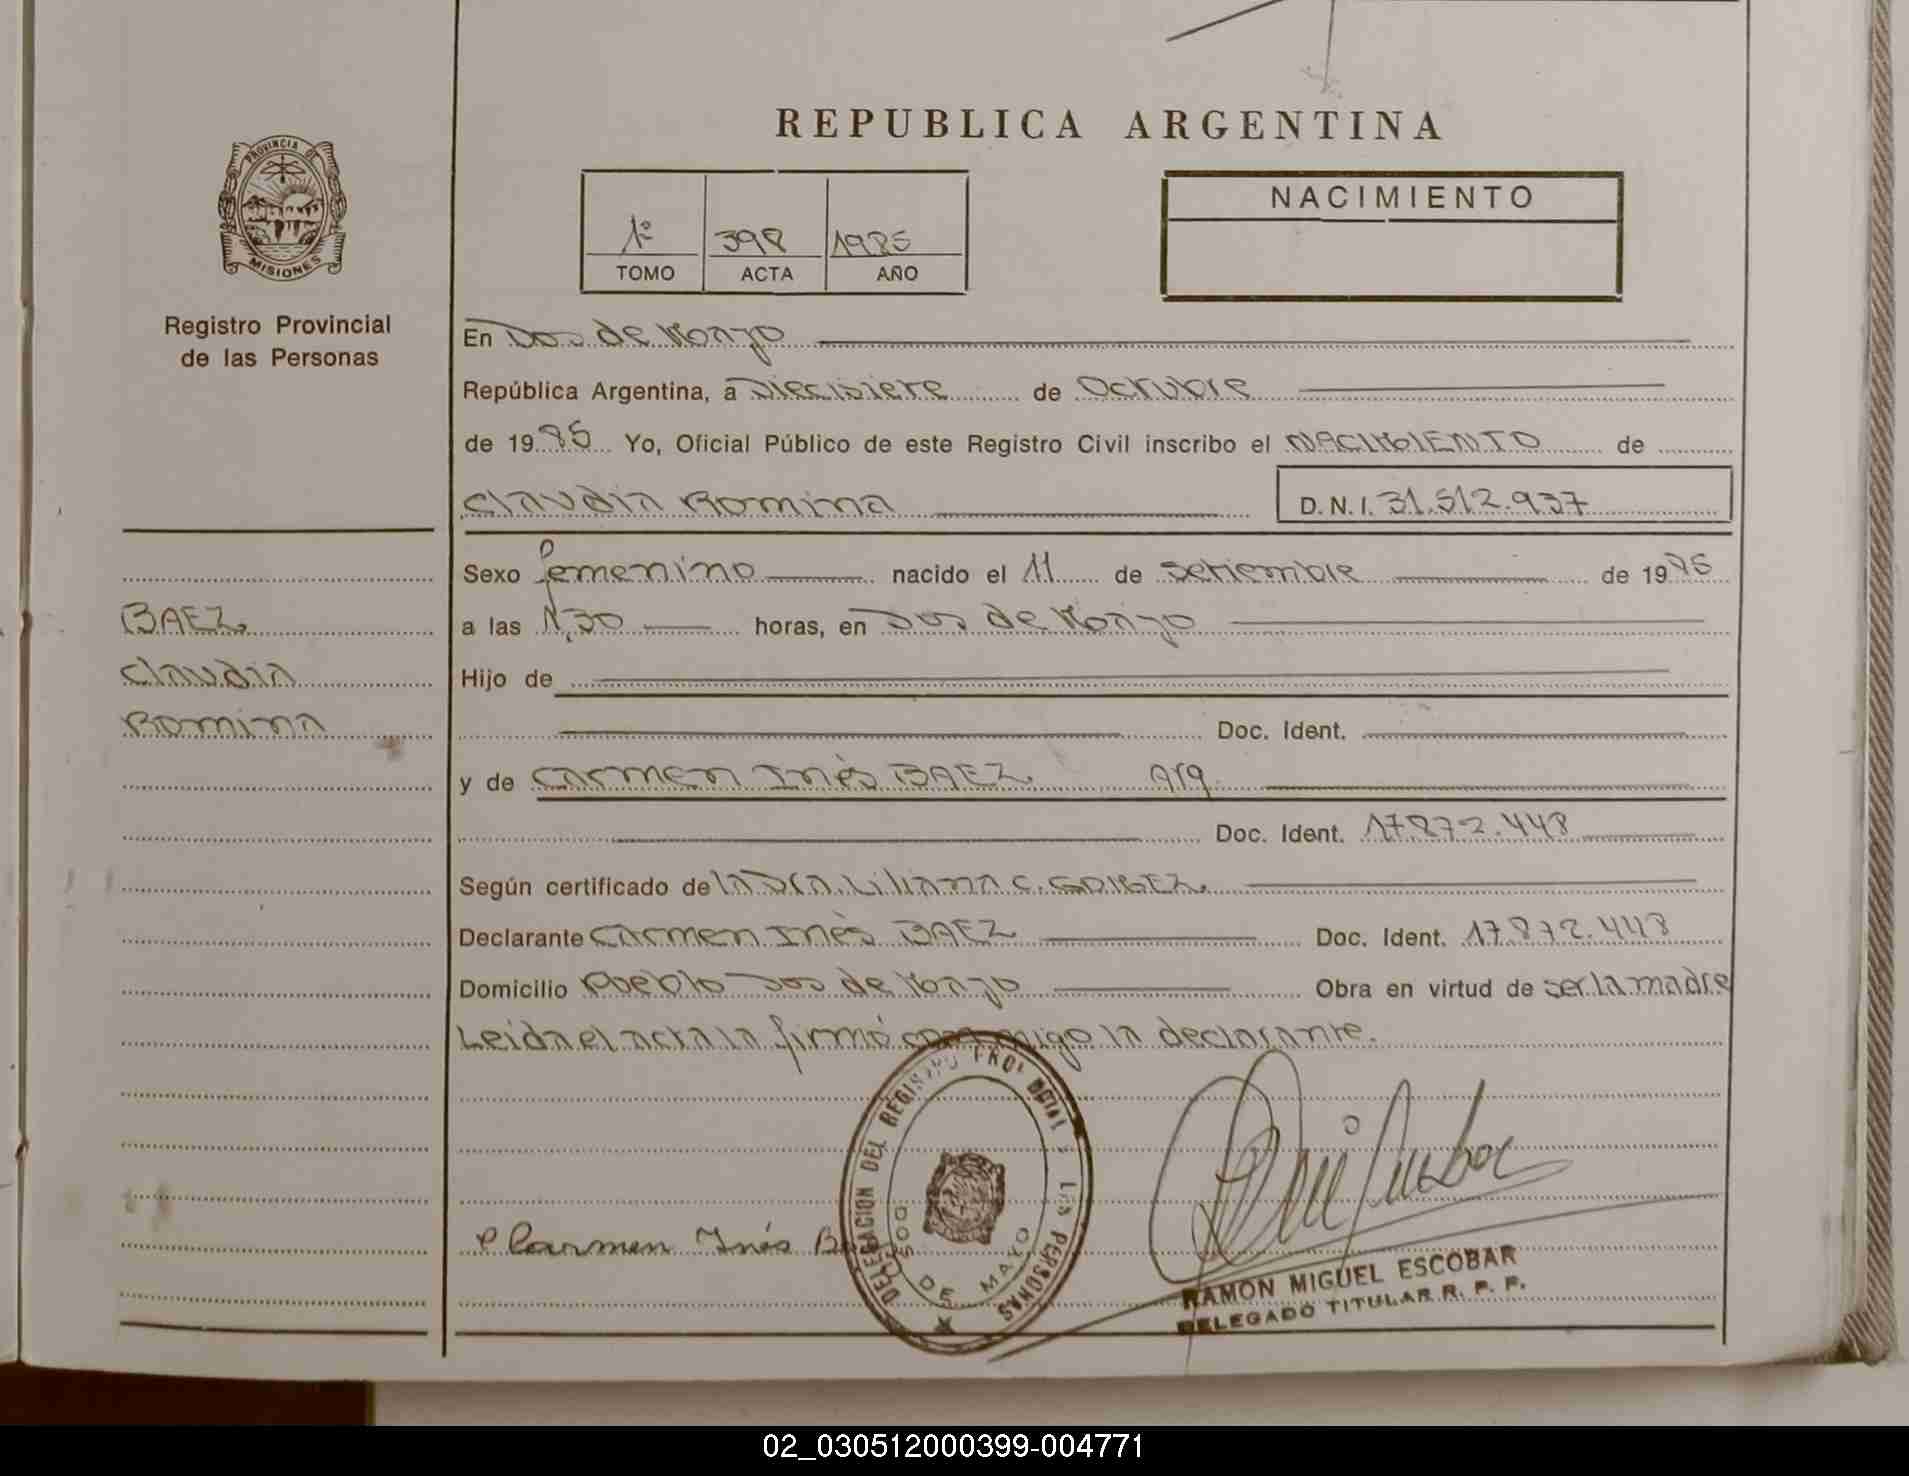 REPUBLICA ARGENTINA
PROVINCIA DE
MISIONES
Registro Provincial
de las Personas
1º 398 1985
TOMO ACTA AÑO
NACIMIENTO
En Dos de Mayo
República Argentina, a Diecisiete de Octubre
de 1985 Yo, Oficial Público de este Registro Civil inscribo el NACIMIENTO de
Claudia Romina D.N.I. 31.512.937
BAEZ
Claudia
Romina
Sexo femenino nacido el 11 de setiembre de 1985
a las 1,30 horas, en Dos de Mayo
Hijo de
Doc. Ident.
y de Carmen Inés BAEZ Arg.
Doc. Ident. 17.872.448
Según certificado de la Dra. Liliana C.
Declarante Carmen Inés BAEZ Doc. Ident. 17.872.448
Domicilio Pueblo Dos de Mayo Obra en virtud de ser la madre
Leida el acta la firmó conmigo la declarante.
DELEGACION DEL REGISTRO PROVINCIAL DE LAS PERSONAS
DOS DE MAYO
Carmen Inés
RAMON MIGUEL ESCOBAR
DELEGADO TITULAR R. P. P.
02_030512000399-004771